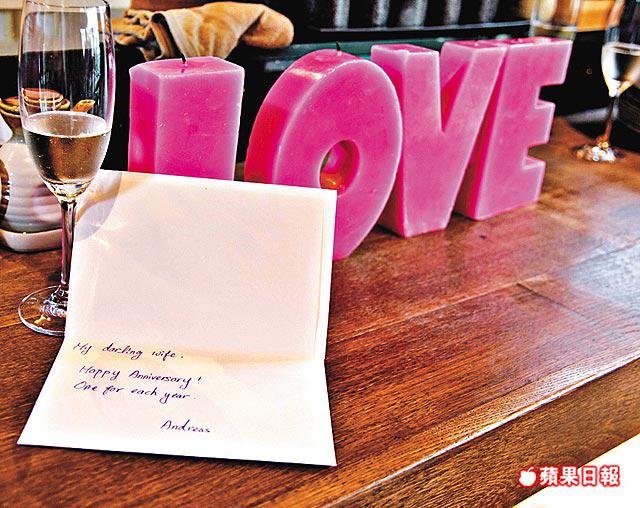 LOVE
My darling wife.
Happy Anniversary!
One for each year.
Andreas
蘋果日報